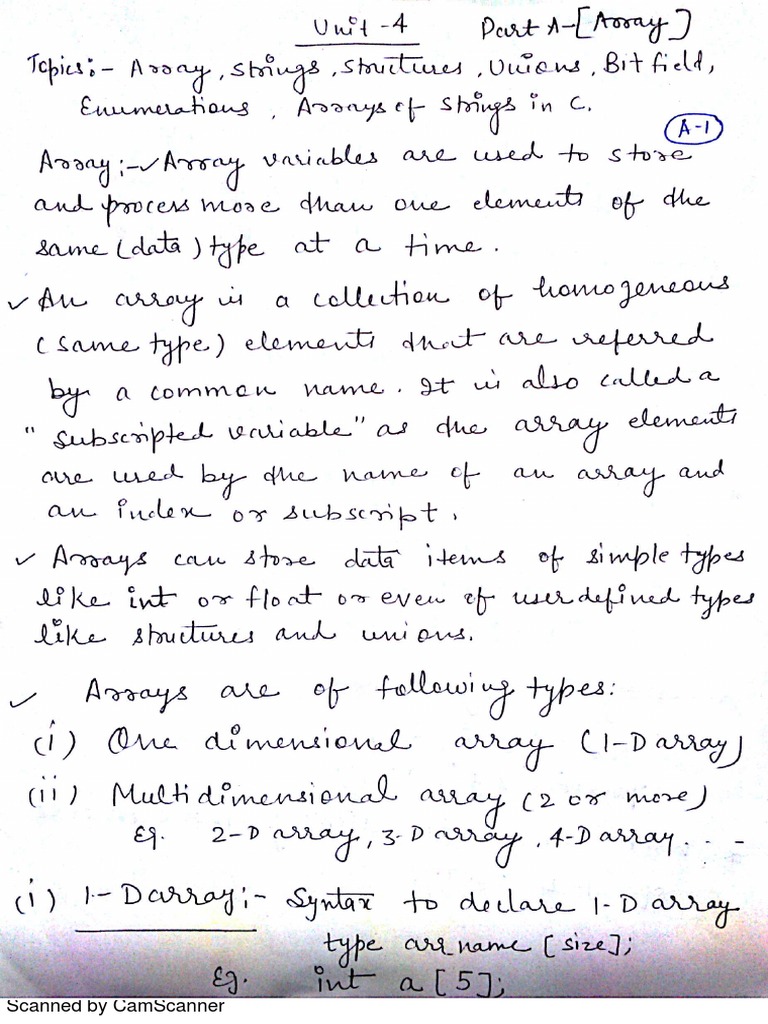 Unit - 4 Part A-[Array]
Topics:- Array, Strings, Structures, Unions, Bit field,
Enumerations, Arrays of Strings in C.
A-1
Array:- ✓ Array variables are used to store
and process more than one elements of the
same (data) type at a time.
✓ An array is a collection of homogeneous
(same type) elements that are referred
by a common name. It is also called a
"subscripted variable" as the array elements
are used by the name of an array and
an index or subscript.
✓ Arrays can store data items of simple types
like int or float or even of user defined types
like structures and unions.
✓ Arrays are of following types:
(i) One dimensional array (1-D array)
(ii) Multidimensional array (2 or more)
Eg. 2-D array, 3-D array, 4-D array. . . -
(i) 1-D array:- Syntax to declare 1-D array
type arr_name [size];
Eg. int a [5];
Scanned by CamScanner